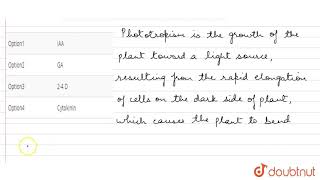 Option1 IAA
Option2 GA
Option3 2-4 D
Option4 Cytokinin
Phototropism is the growth of the
plant toward a light source,
resulting from the rapid elongation
of cells on the dark side of plant,
which causes the plant to bend
doubtnut